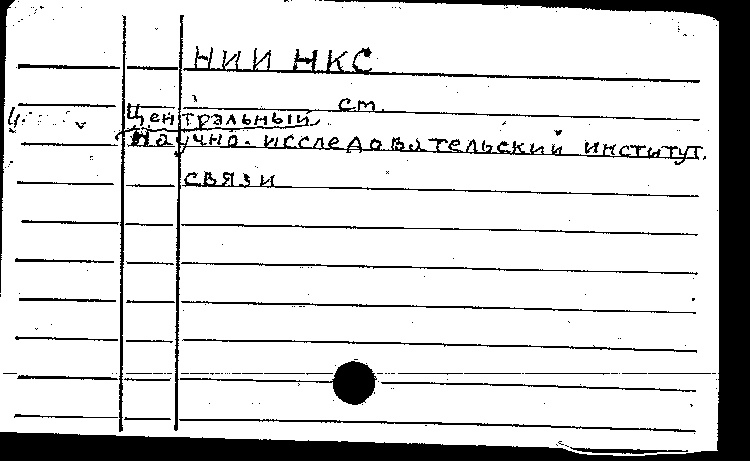 НИИ НКС
см.
Центральный
научно-исследовательский институт
связи